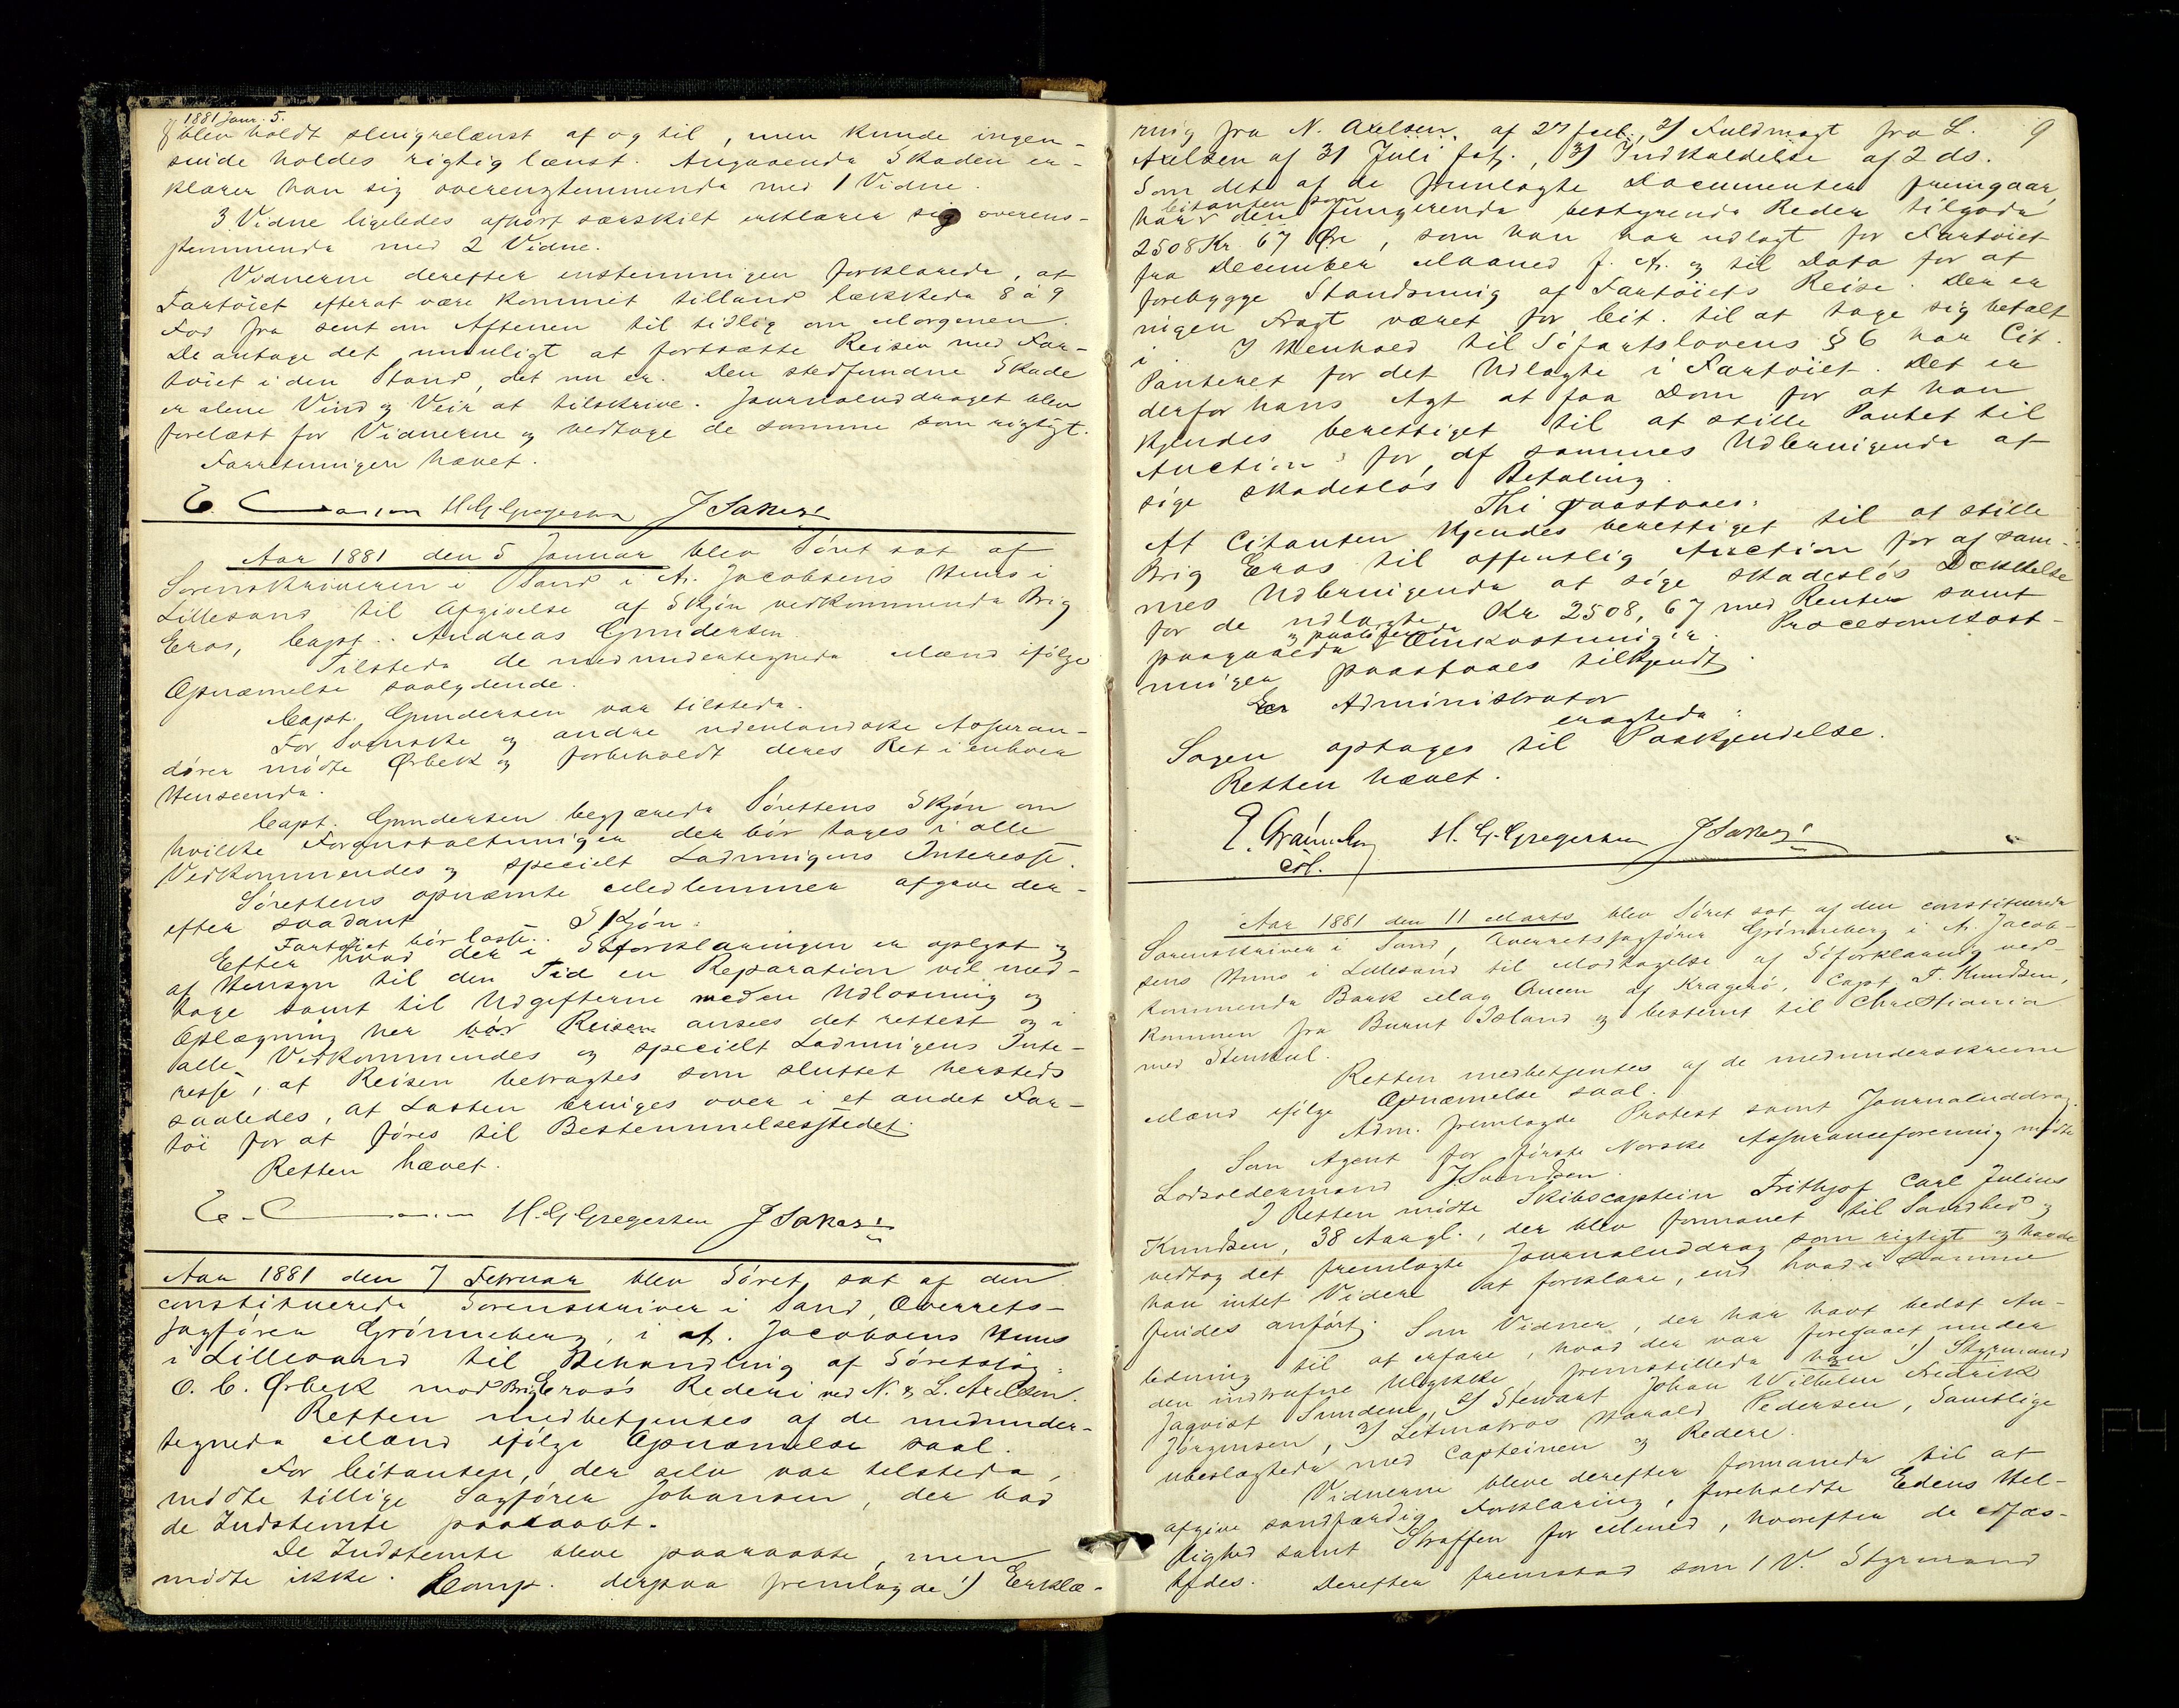 1881 Janr. 5.
blev holdt slingrelænst af og til, men kunde ingen-
sinde holdes rigtig lænst. Angaaende Skaden er-
klærer han sig overensstemmende med 1 Vidne.
3 Vidne ligeledes afhørt særskilt erklærer sig overens-
stemmende med 2 Vidne.
Vidnerne derefter enstemmigen forklarede, at
Fartöiet efterat være kommet tilland lækkede 8 à 9
Fod fra sent om Aftenen til tidlig om Morgenen.
De antage det umuligt at fortsætte Reisen med Far-
töiet i den Stand, det nu er. Den stedfundne Skade
er alene Vind og Veir at tilskrive. Journaluddraget blev
forelæst for Vidnerne og vedtoge de samme som rigtigt.
Forretningen hævet.
H. G. Gregersen J Saker
Aar 1881 den 5 Januar blev Söret sat af
Sorenskriveren i Sand i A. Jacobsens Huus i
Lillesand til Afgivelse af Skjön vedkommende Brig
Eros, Capt. Andreas Gundersen.
Tilstede de medundertegnede Mænd ifölge
Opnævnelse saalydende.
Capt. Gundersen var tilstede.
For Svenske og andre udenlandske Assuran-
dörer mödte Ørbek og forbeholdt deres Ret i enhver
Henseende.
Capt. Gundersen begjærede Sörettens Skjön om
hvilke Foranstaltninger der bör tages i alle
Vedkommendes og specielt Ladningens Interesse.
Sörettens opnævnte Medlemmer afgave der-
efter saadant Skjön:
Fartöiet bör losse.
Efter hvad der i Söforklaringen er oplyst og
af Hensyn til den Tid en Reparation vil med-
tage samt til Udgifterne med en Udlosning og
Oplægning her bör Reisen ansees det rettest og i
alle Vedkommendes og specielt Ladningens Inte-
resse, at Reisen betragtes som sluttet hersteds
saaledes, at Lasten bringes over i et andet Far-
töi for at föres til Bestemmelsesstedet.
Retten hævet.
H. G. Gregersen J Saker
Aar 1881 den 7 Februar blev Söret sat af den
constituerede Sorenskriver i Sand, Overrets-
sagförer Grönneberg, i A. Jacobsens Huus
i Lillesand til Behandling af Söretssag:
O. C. Ørbek mod Brig Eros's Rederi ved N. & L. Axelsen.
Retten medbetjentes af de medunder-
tegnede Mænd ifölge Opnævnelse saal.
For Citanten, der selv var tilstede,
mödte tillige Sagförer Johansen, der bad
de Indstemte paaraabt.
De Indstemte bleve paaraabte, men
mödte ikke. Comp. derpaa fremlagde 1) Erklæ-
9
ring fra N. Axelsen af 27 2) Fuldmagt fra L.
Axelsen af 31 Juli 3) Indkaldelse af 2 ds.
Som det af de fremlagte Documenter fremgaar,
Citanten som
har den fungerende bestyrende Reder tilgode
2508 Kr 67 Øre, som han har udlagt for Fartöiet
fra December Maaned f. A. og til Dato for at
forebygge Standsning af Fartöiets Reise. Der er
ingen Fragt været for Cit. til at tage sig betalt
i. I Henhold til Söfartslovens § 6 har Cit.
Panteret for det Udlagte i Fartöiet. Det er
derfor hans Agt at faa Dom for at han
kjendes berettiget til at stille Pantet til
Auction for af sammes Udbringende at
söge skadeslös Betaling.
Thi paastaaes:
At Citanten kjendes berettiget til at stille
Brig Eros til offentlig Auction for af sam-
mes Udbringende at söge skadeslös Dækkelse
for de udlagte Kr 2508,67 med Renter samt
og paalöbende
paagaaede Omkostninger. Procesomkost-
ninger paastaaes tilkjendt.
Administrator
eragtede:
Sagen optages til Paakjendelse.
Retten hævet.
E. Grönneberg H. G. Gregersen J Saker
cst.
Aar 1881 den 11 Marts blev Söret sat af den constituerede
Sorenskriver i Sand, Overretssagförer Grönneberg i A. Jacob-
sens Huus i Lillesand til Modtagelse af Söforklaring ved-
kommende Bark May Queen af Kragerö, Capt. F. Knudsen,
kommen fra Burnt Island og bestemt til Christiania
med Stenkul.
Retten medbetjentes af de medunderskrevne
Mænd ifölge Opnævnelse saal.
Adm. fremlagde Protest samt Journaluddrag.
Som Agent for förste Norske Assuranceforening mödte
Lodsoldermand J Svendsen.
I Retten mödte Skibscaptein Frithjof Carl Julius
Knudsen, 38 Aar gl., der blev formanet til Sandhed og
vedtog det fremlagte Journaluddrag som rigtigt og havde
han intet Videre at forklare, end hvad i samme
findes anfört. Som Vidner, der har havt bedst An-
ledning til at erfare, hvad der var foregaaet under
den indtrufne Ulykke fremstillede han 1) Styrmand
Jaqvist Sundene, 2) Stewart Johan Wilhelm Fredrik
Jörgensen, 3) Letmatros Harald Pedersen, samtlige
ubeslægtede med Capteinen og Redere.
Vidnerne bleve derefter formanede til at
afgive sandfærdig Forklaring, foreholdte Edens Hel-
lighed samt Straffen for Meened, hvorefter de edfæs-
tedes. Derefter fremstod som 1 V. Styrmand